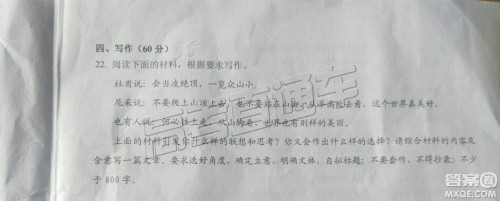 四、写作（60分）
22. 阅读下面的材料，根据要求写作。
杜甫说：会当凌绝顶，一览众山小。
尼采说：不要爬上山顶去，也不要站在山脚，从半高处去看，这个世界真美好。
也有人说：何必往上走，从山脚看，世界也有别样的美丽。
上面的材料引发你怎么样的联想和思考？你又会作出什么样的选择？请综合材料的内容及
含意写一篇文章。要求选好角度，确定立意，明确文体，自拟标题；不要套作，不得抄袭；不少
于800字。
高考直通车